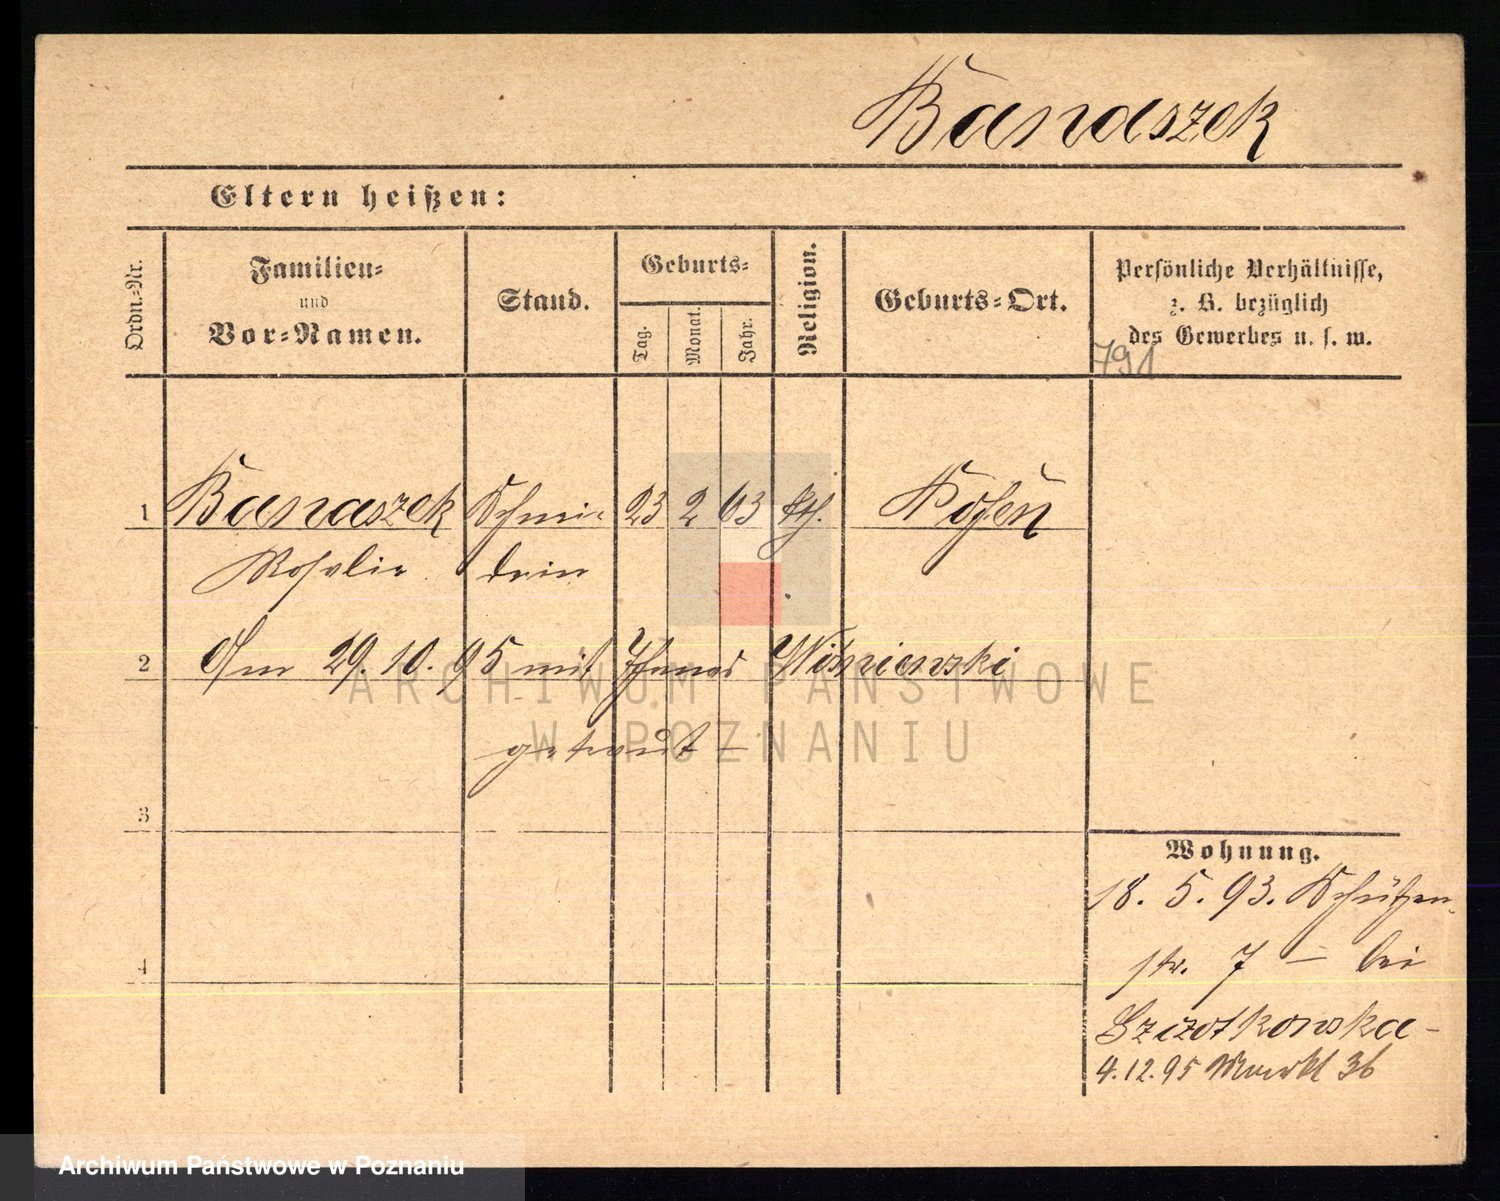 Banaszek
Eltern heißen:
Ordn.-Nr.
Familien-
und
Vor-Namen.
Stand.
Geburts-
Tag.
Monat.
Jahr.
Religion.
Geburts-Ort.
Persönliche Verhältnisse,
z. B. bezüglich
des Gewerbes u. s. w.
791
1 Banaszek Schnei- 23 2 63 kth. Posen
Rosalie derin
2 Am 29. 10. 95 mit Wisniewski
getraut –
3
4
Wohnung.
18. 5. 93. Schützen-
str. 7 – bei
4.12.95 Markt 36
ARCHIWUM PAŃSTWOWE
W POZNANIU
Archiwum Państwowe w Poznaniu